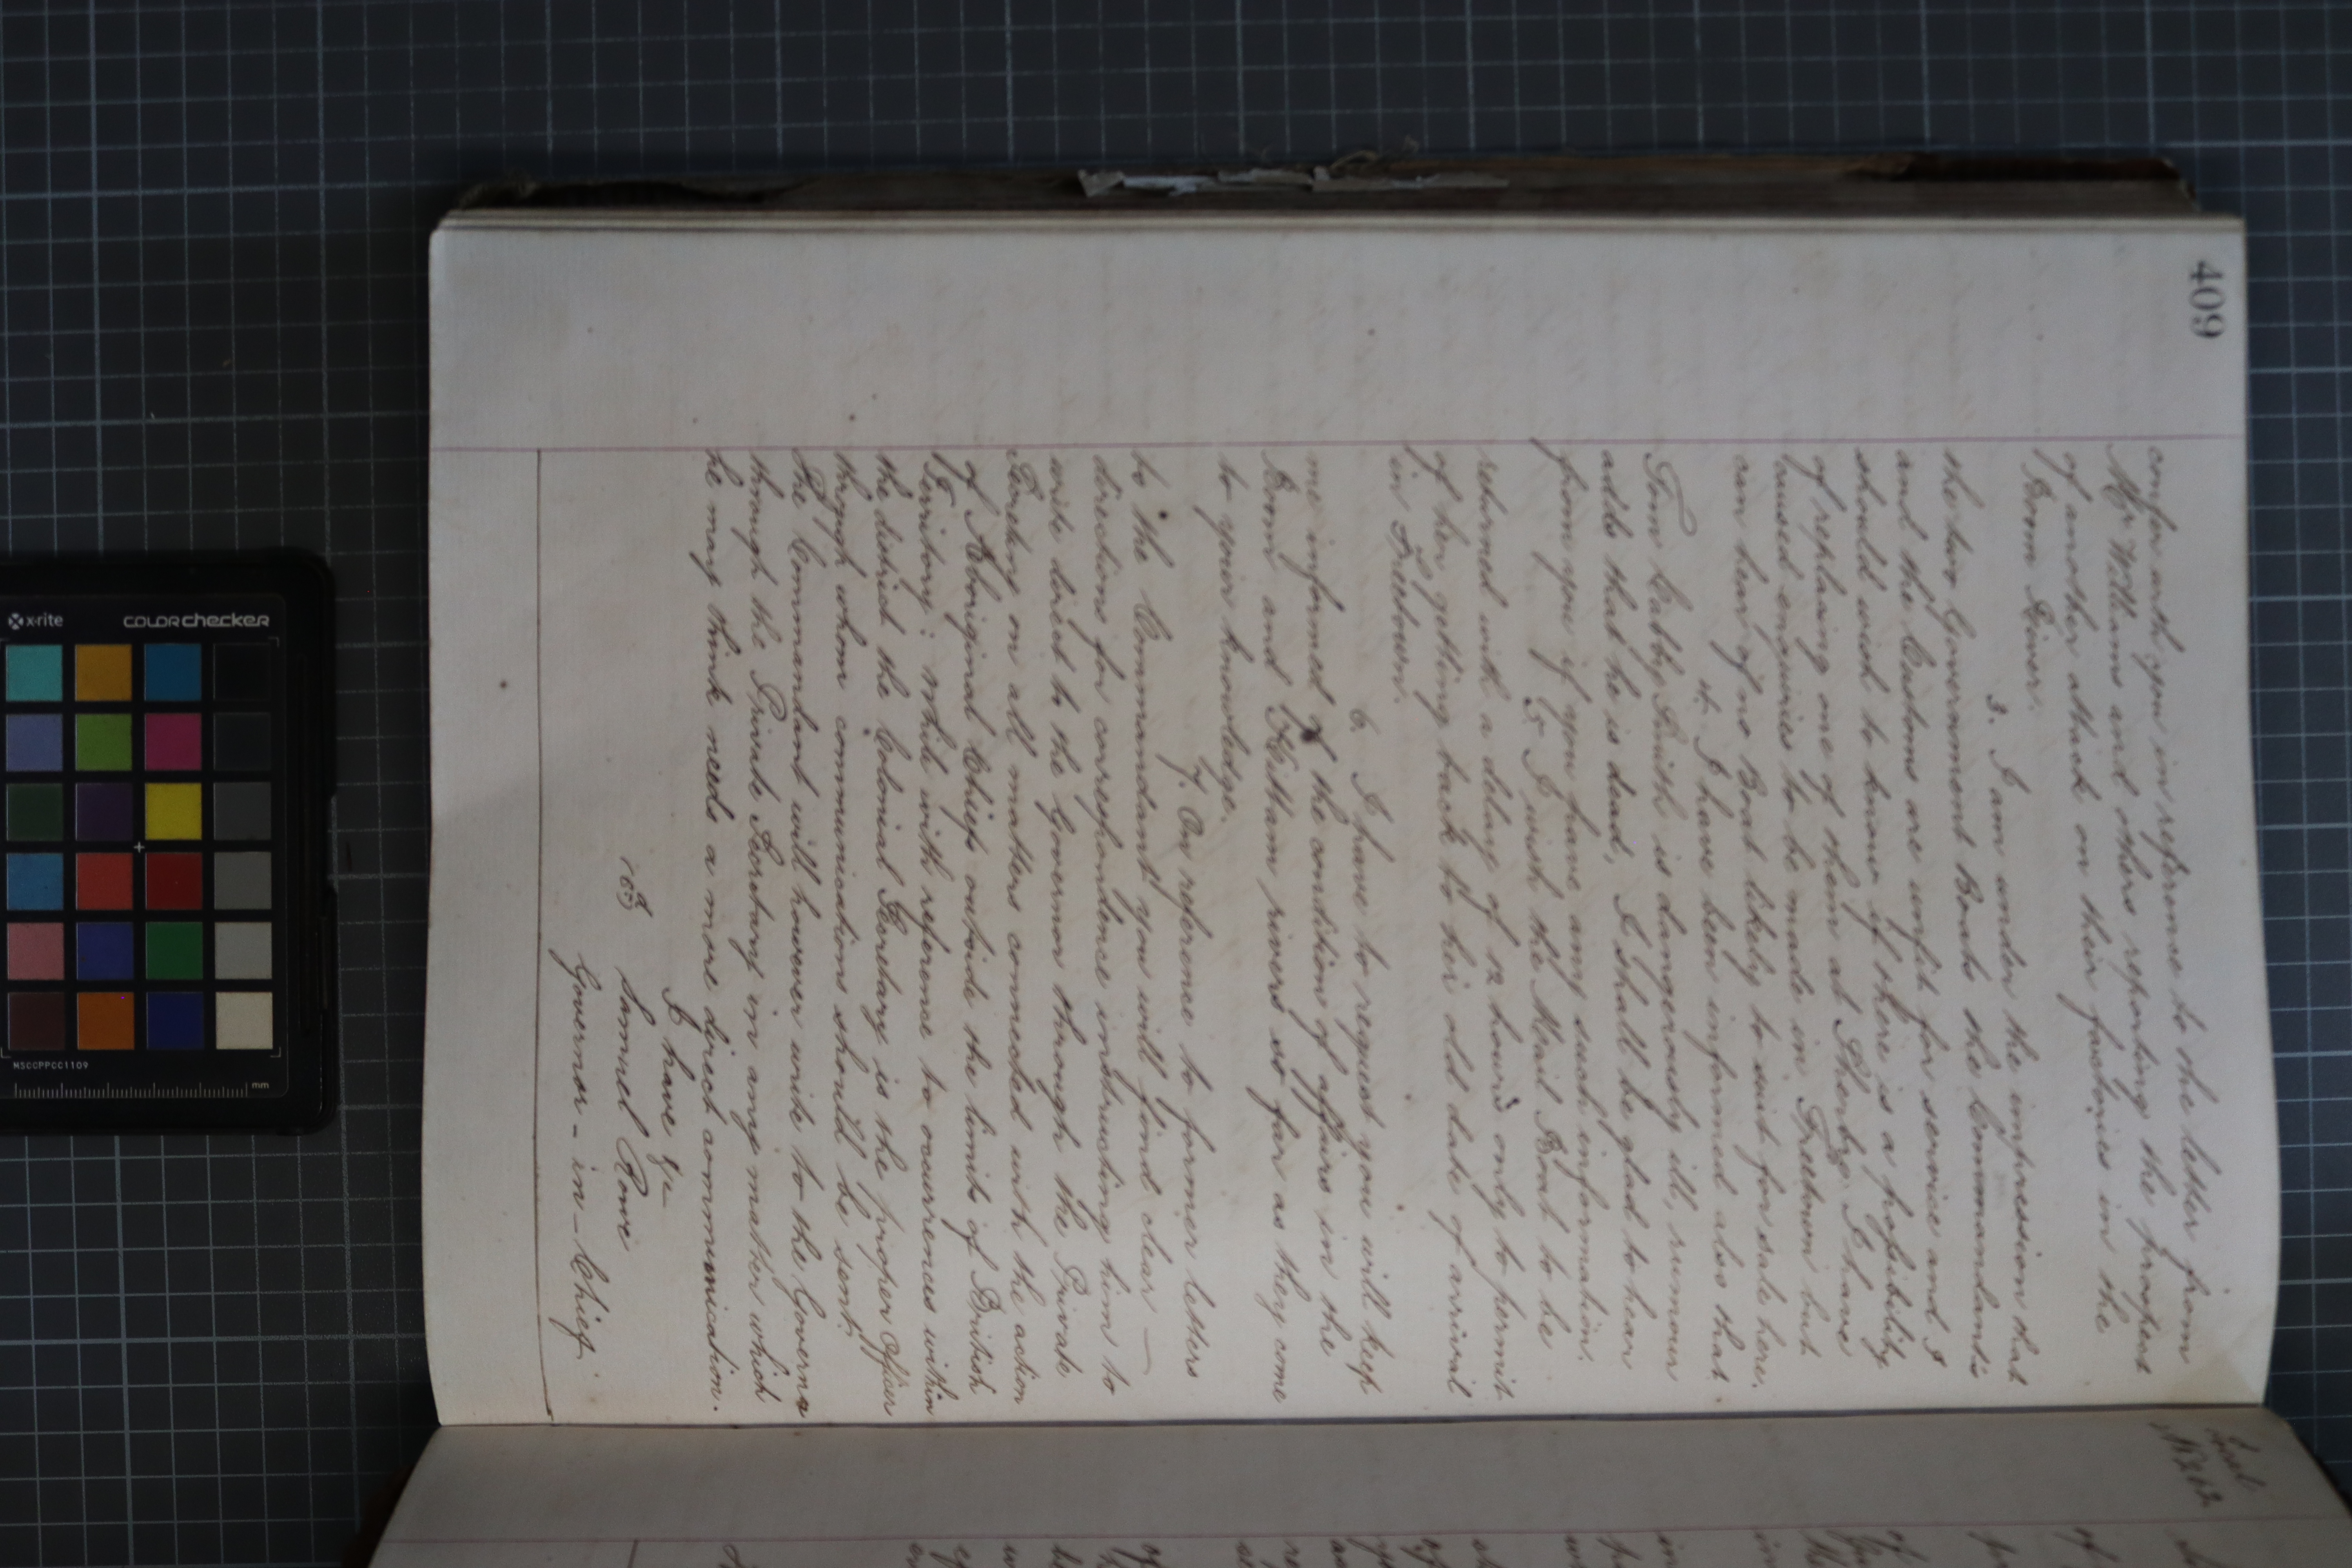 409
confer with you in reference to the letter from
Mr Williams and others, reporting the prospect
of another attack on their factories in the
Boom River.
3. I am under the impression that
the two Government Boats the Commandant's
and the Customs are unfit for service and I
should wish to know if there is a possibility
of replacing one of them at Sherbro. I have
caused enquiries to be made in Freetown but
can hear of no Boat likely to suit for sale here.
4. I have been informed also that
Tom Kabby Smith is dangerously ill, rumour
adds that he is dead, I shall be glad to hear
from you if you have any such information.
5. I wish the Mail Boat to be
returned with a delay of 12 hours only to permit
of her getting back to her old date of arrival
in Freetown.
6. I have to request you will keep
me informed of the condition of affairs in the
Boom and Kittam rivers so far as they come
to your knowledge.
7. On reference to former letters
to the Commandant you will find clear —
directions for correspondence instructing him to
write direct to the Governor through the Private
Secretary on all matters connected with the action
of Aboriginal Chiefs outside the limits of British
Territory; while with reference to occurrences within
the district the Colonial Secretary is the proper Officer
through whom communications should be sent.
The Commandant will however write to the Governor
through the Private Secretary in any matter which
he may think needs a more direct communication.
I have &c
Samuel Rowe
Governor-in-Chief
x-rite
colorchecker
NSCCPPCC1109
mm